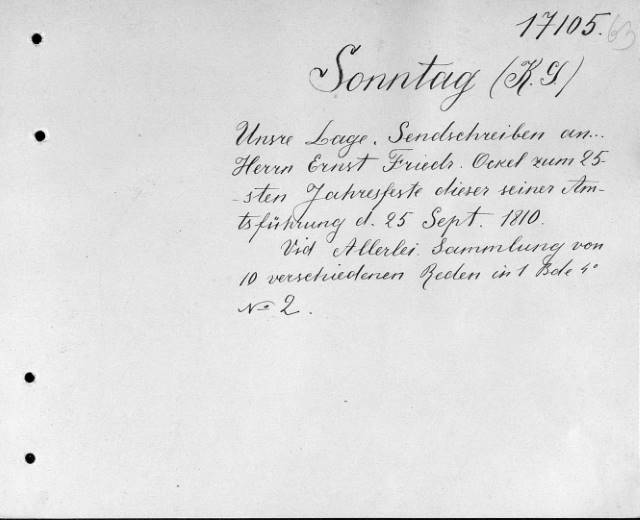 17105. 63
Sonntag (K. G)
Unsre Lage. Sendschreiben an...
Herrn Ernst Friedr. Ockel zum 25-
-sten Jahresfeste dieser seiner Am-
tsführung d. 25 Sept. 1810.
Vid Allerlei Sammlung von
10 verschiedenen Reden in 1 Bde 4°
No 2.